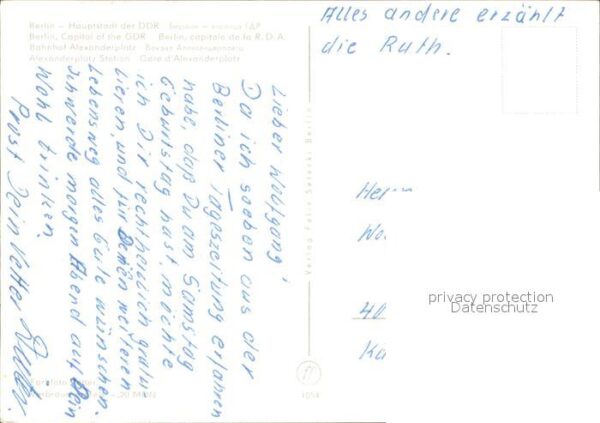 Berlin – Hauptstadt der DDR
Berlin, Capital of the GDR Berlin, capitale de la R.D.A.
Bahnhof Alexanderplatz
Alexanderplatz Station Gare d'Alexanderplatz
Alles andere erzählt
die Ruth.
Lieber Wolfgang!
Da ich soeben aus der
Berliner Tageszeitung erfahren
habe, daß Du am Samstag
Geburtstag hast, möchte
ich Dir recht herzlich gratu-
lieren, und für Deinen weiteren
Lebensweg alles Gute wünschen.
Ich werde morgen Abend auf Dein
Wohl trinken.
Prost Dein Vetter
Verlag Felix Setecki Berlin
Her
Wo
40
Ka
privacy protection
Datenschutz
1054